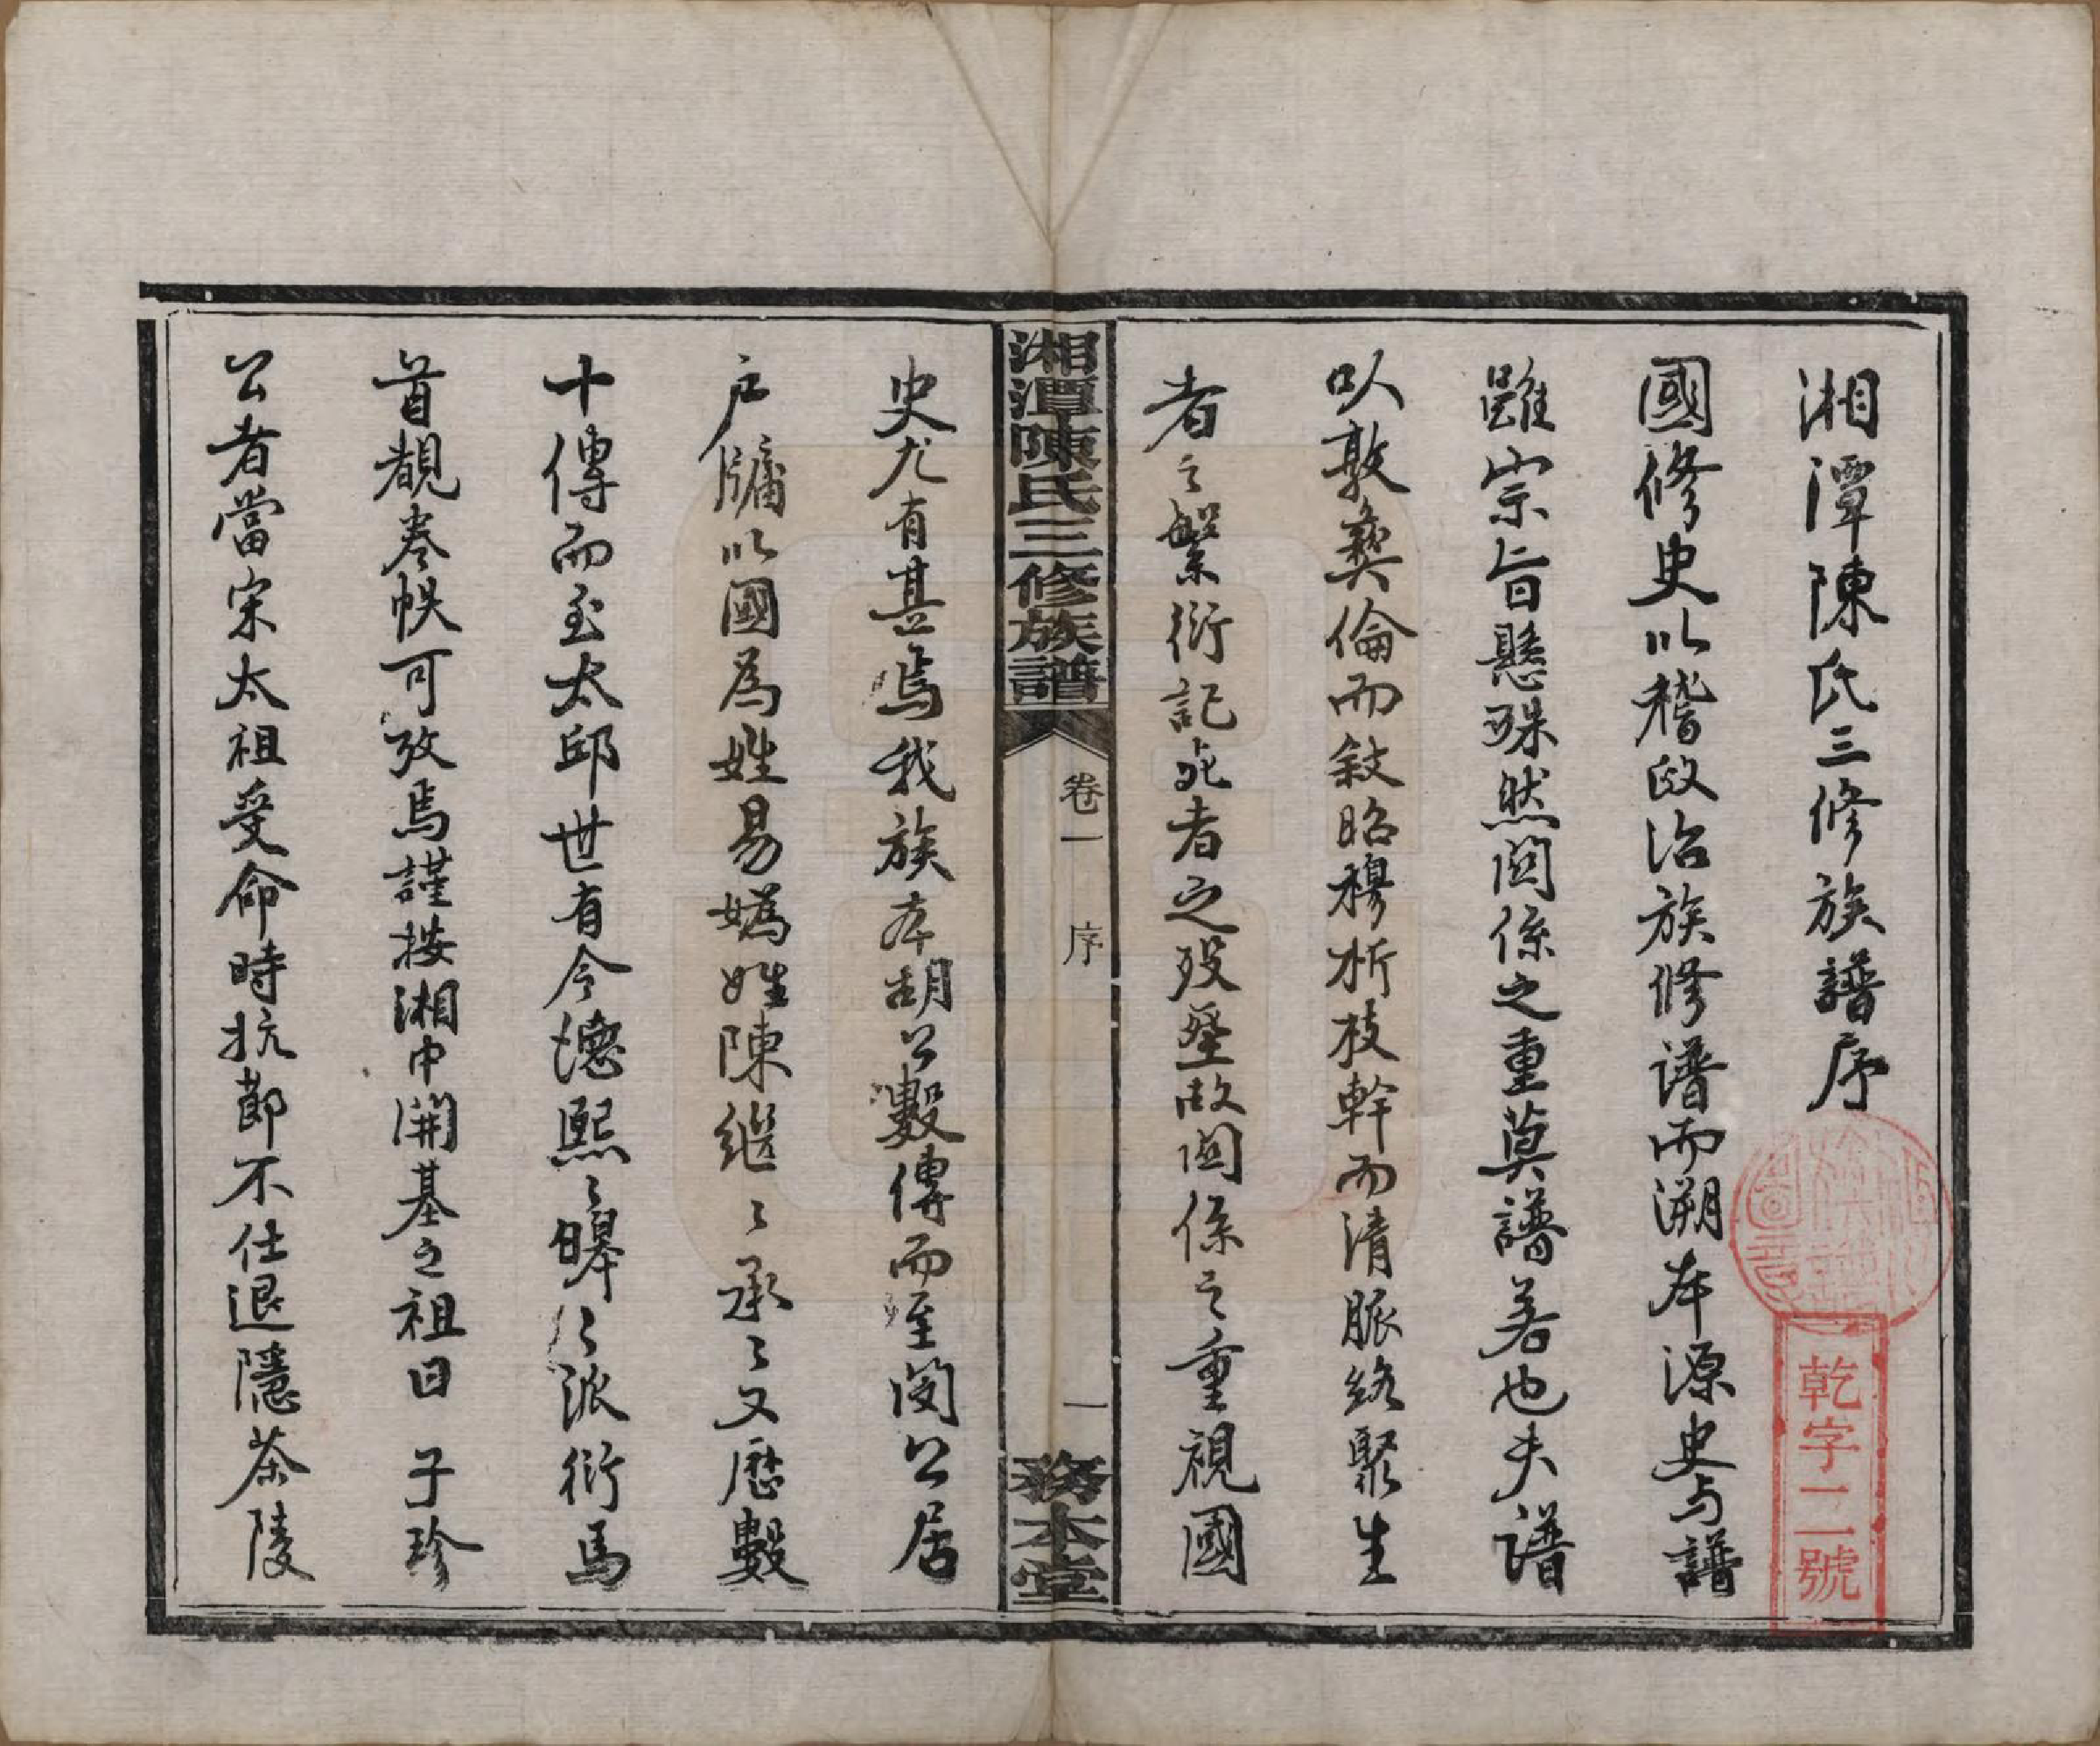 湘潭陳氏三修族譜序
國修史以稽政治族修譜而溯本源史与譜
雖宗旨懸殊然関係之重莫譜若也夫譜
以敦彝倫而敘昭穆析枝幹而清脈絡聚生
者之繁衍記死者之歿塟故関係之重視國
湘潭陳氏三修族譜
卷一
序
一
務本堂
史尤有甚焉我族本胡公數傳而至閔公居
戶牖以國為姓易媯姓陳繼〻承〻又歷數
十傳而至太邱世有令德熙〻皞〻派衍焉
首覩卷帙可攷焉謹按湘中開基之祖曰 子珍
公者當宋太祖受命時抗節不仕退隱茶陵
乾字二號